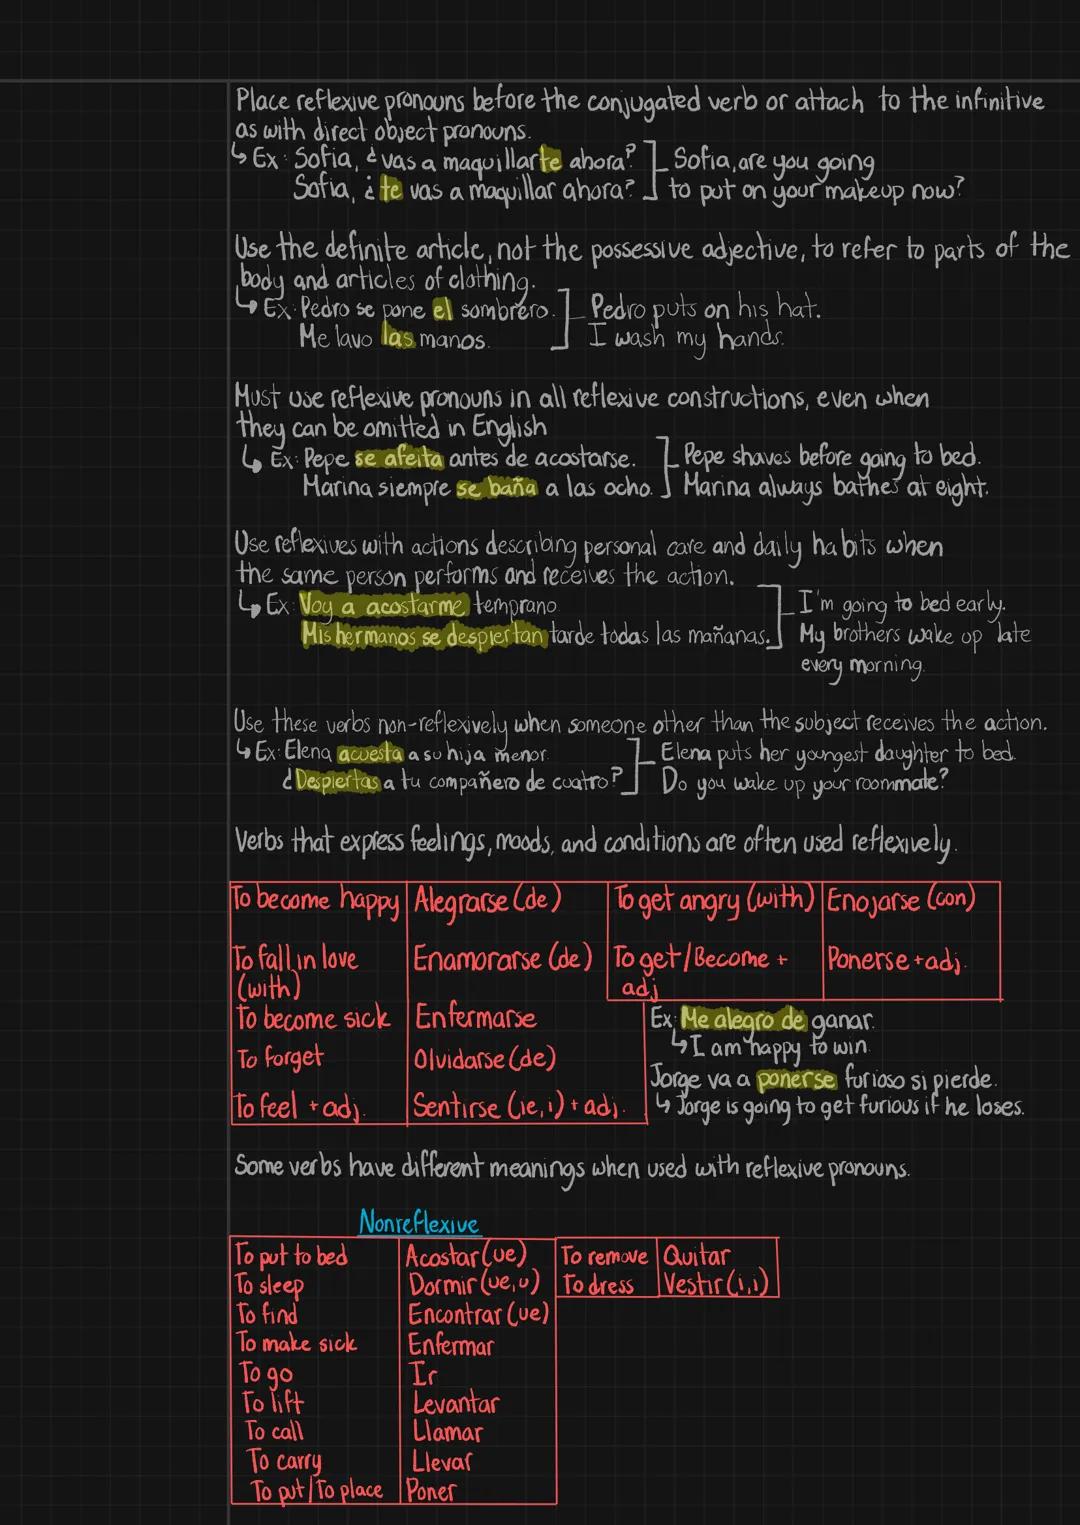 Place reflexive pronouns before the conjugated verb or attach to the infinitive
as with direct object pronouns.
↳ Ex: Sofia, ¿vas a maquillarte ahora? Sofia, are you going
Sofia, ¿te vas a maquillar ahora? to put on your makeup now?
Use the definite article, not the possessive adjective, to refer to parts of the
body and articles of clothing.
↳ Ex: Pedro se pone el sombrero. Pedro puts on his hat.
Me lavo las manos. I wash my hands.
Must use reflexive pronouns in all reflexive constructions, even when
they can be omitted in English
↳ Ex: Pepe se afeita antes de acostarse. Pepe shaves before going to bed.
Marina siempre se baña a las ocho. Marina always bathes at eight.
Use reflexives with actions describing personal care and daily habits when
the same person performs and receives the action.
↳ Ex: Voy a acostarme temprano. I'm going to bed early.
Mis hermanos se despiertan tarde todas las mañanas. My brothers wake up late
every morning.
Use these verbs non-reflexively when someone other than the subject receives the action.
↳ Ex: Elena acuesta a su hija menor. Elena puts her youngest daughter to bed.
¿Despiertas a tu compañero de cuatro? Do you wake up your roommate?
Verbs that express feelings, moods, and conditions are often used reflexively.
To become happy Alegrarse (de) To get angry (with) Enojarse (con)
To fall in love Enamorarse (de) To get/Become + Ponerse + adj.
(with) adj
To become sick Enfermarse Ex: Me alegro de ganar.
↳ I am happy to win.
To forget Olvidarse (de) Jorge va a ponerse furioso si pierde.
To feel + adj. Sentirse (ie, i) + adj. ↳ Jorge is going to get furious if he loses.
Some verbs have different meanings when used with reflexive pronouns.
Nonreflexive
To put to bed Acostar (ue) To remove Quitar
To sleep Dormir (ue, u) To dress Vestir (i, i)
To find Encontrar (ue)
To make sick Enfermar
To go Ir
To lift Levantar
To call Llamar
To carry Llevar
To put / To place Poner